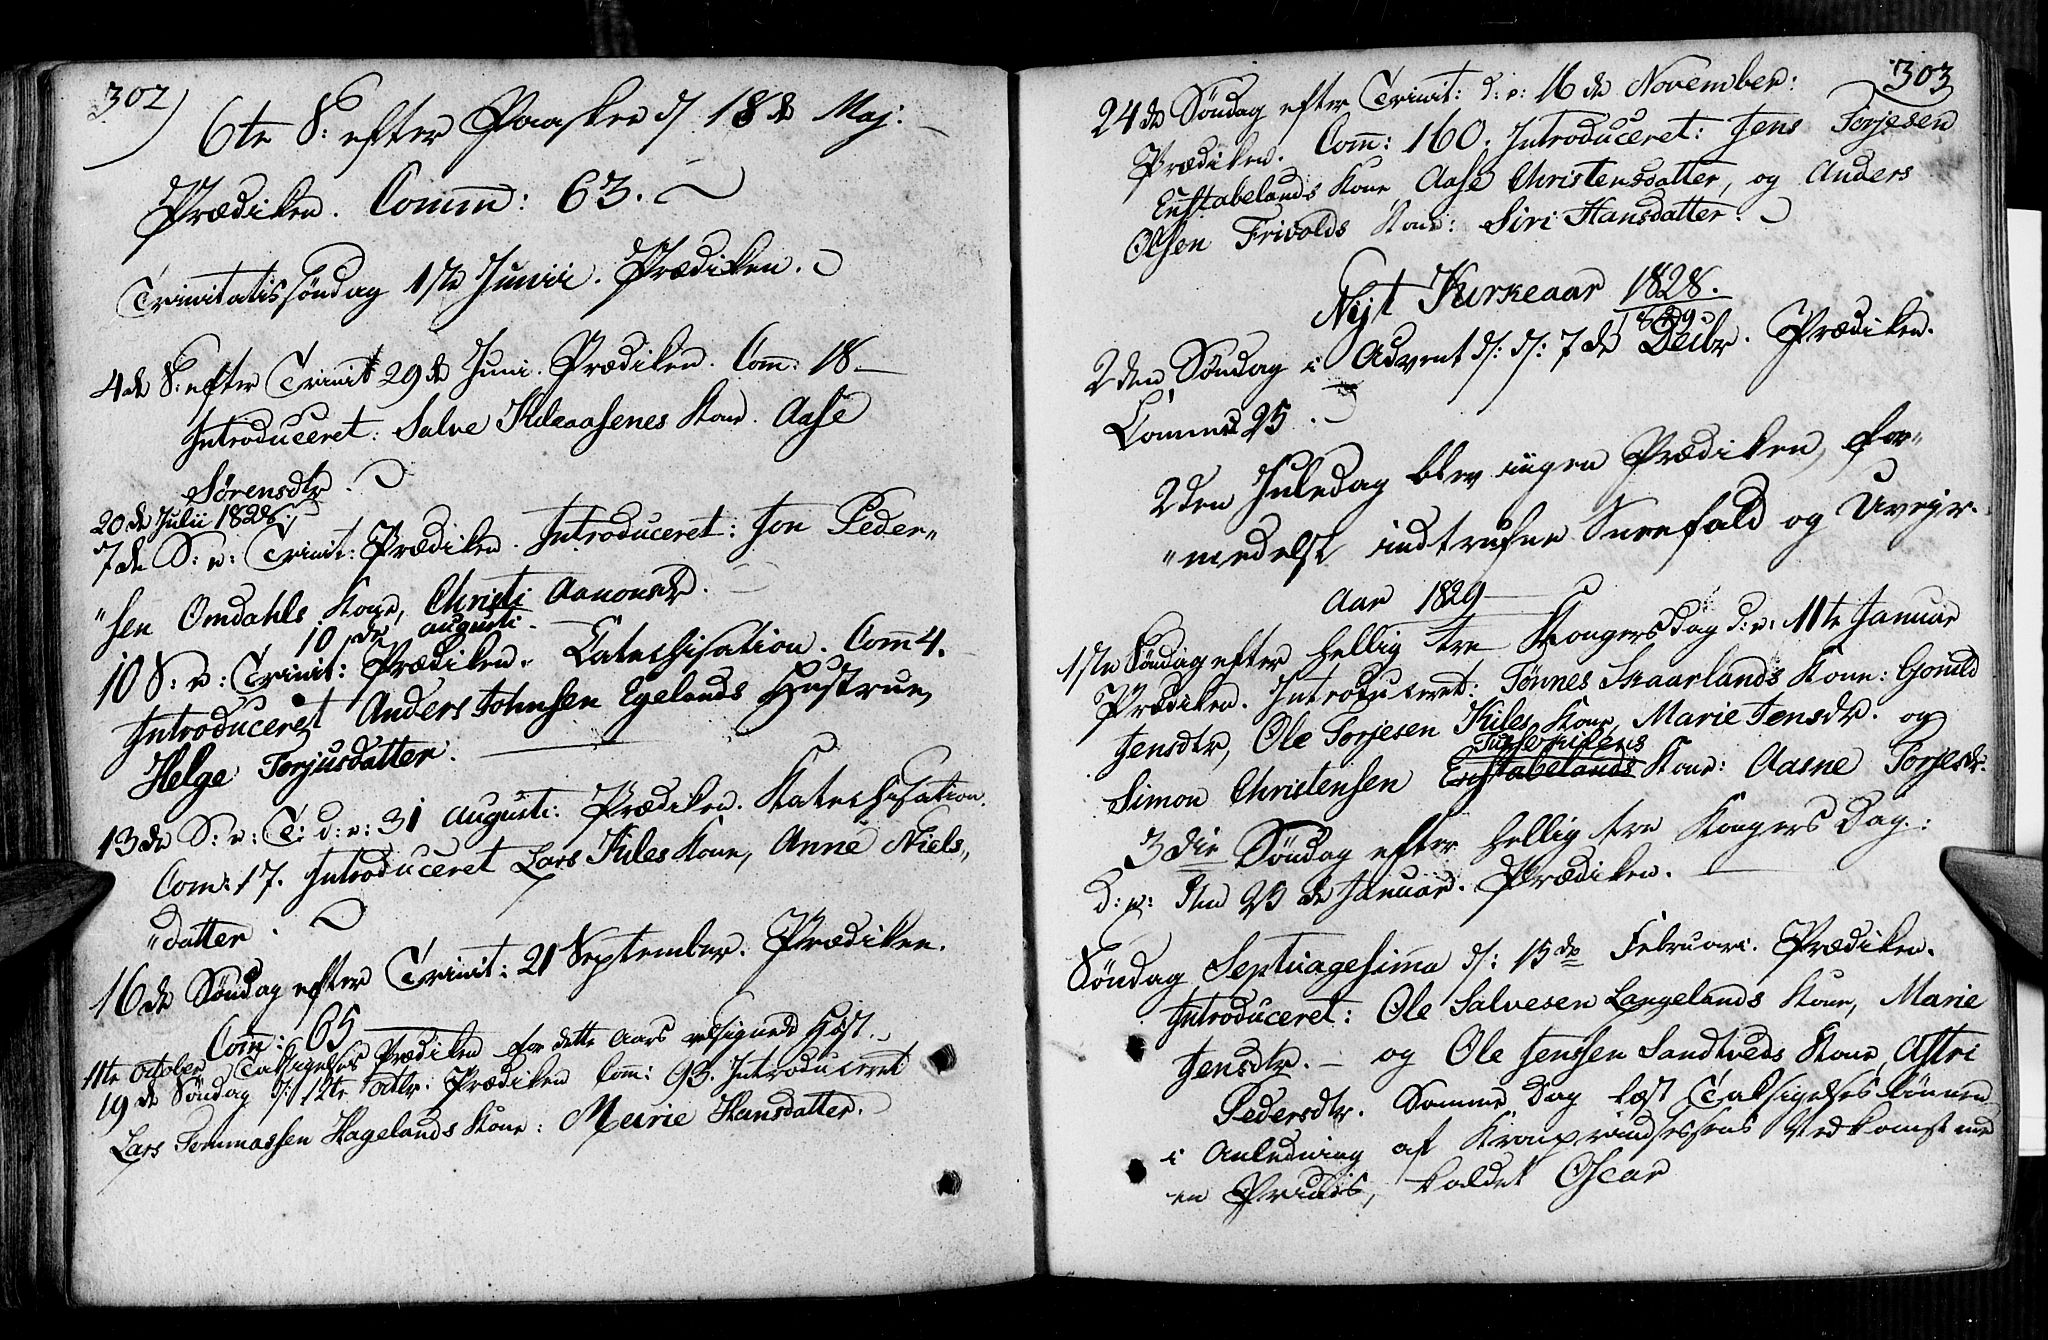 302)
6te S: efter Paaske d/ 18de Maj:
Prædiken. Comm: 63.
Trinitatissøndag 1ste Junii. Prædiken.
4de S: efter Trinit 29de Juni. Prædiken. Com: 18
Introduceret: Salve Kileaasenes Kone. Aase
Sørensdtr.
20de Julii 1828:/
7de S: e: Trinit: Prædiken. Introduceret: Jon Peder„
„sen Omdahls Kone, Christi Aanonsdr.
10de augusti
10 S: e: Trinit: Prædiken. Catechisation. Com 4.
Introduceret Anders Johnsen Egelands Hustrue,
Helge Torjusdatter.
13de S: e: T: d: e: 31 Augusti: Prædiken. Katechisation.
Com: 17. Introduceret Lars Kiles Kone, Anne Niels„
„datter.
16de Søndag efter Trinit: 21 September. Prædiken.
Com: 65
11te October Taksigelses Prædiken for dette Aars velsignede Høst.
19de Søndag d:/ 12te Octbr: Prædiken Com: 93. Introduceret
Lars Tommassen Hagelands Kone: Marie Hansdatter.
303
24de Søndag efter Trinit: d: e: 16de November:
Prædiken. Com: 160. Introduceret: Jens Torjesen
Eustabelands Kone Aase Christensdatter, og Anders
Olsen Frivolds Kone: Siri Hansdatter.
Nyt Kirkeaar 1828.
1829.
2den Søndag i Advent d/: d/: 7de Decbr. Prædiken.
Commu 25.
2den Juledag blev ingen Prædiken, for„
„medelst indtrufne Sneefald og Uvejr.
Aar 1829
1ste Søndag efter hellig tre Kongersdag d: e: 11te Januar
Prædiken. Introduceret: Tønnes Skaarlands Kone: Gonild
Jensdtr, Ole Torjesen Kiles Kone Marie Jensdr. og
Simon Christensen Eustabelands Kone: Aasne Torjesdr.
3die Søndag efter hellig tre Kongers Dag:
D: e: den 25de Januar. Prædiken.
Søndag Septuagesima d/: 15de Februari. Prædiken.
Introduceret: Ole Salvesen Langelands Kone, Marie
Jensdtr. og Ole Jenssen Sandtveds Kone Astri
Pedersdtr. Samme Dag læst Taksigelsesbønnen
i Anledning af Kronprindsessens Nedkomst med
en Prinds, kaldet Oscar